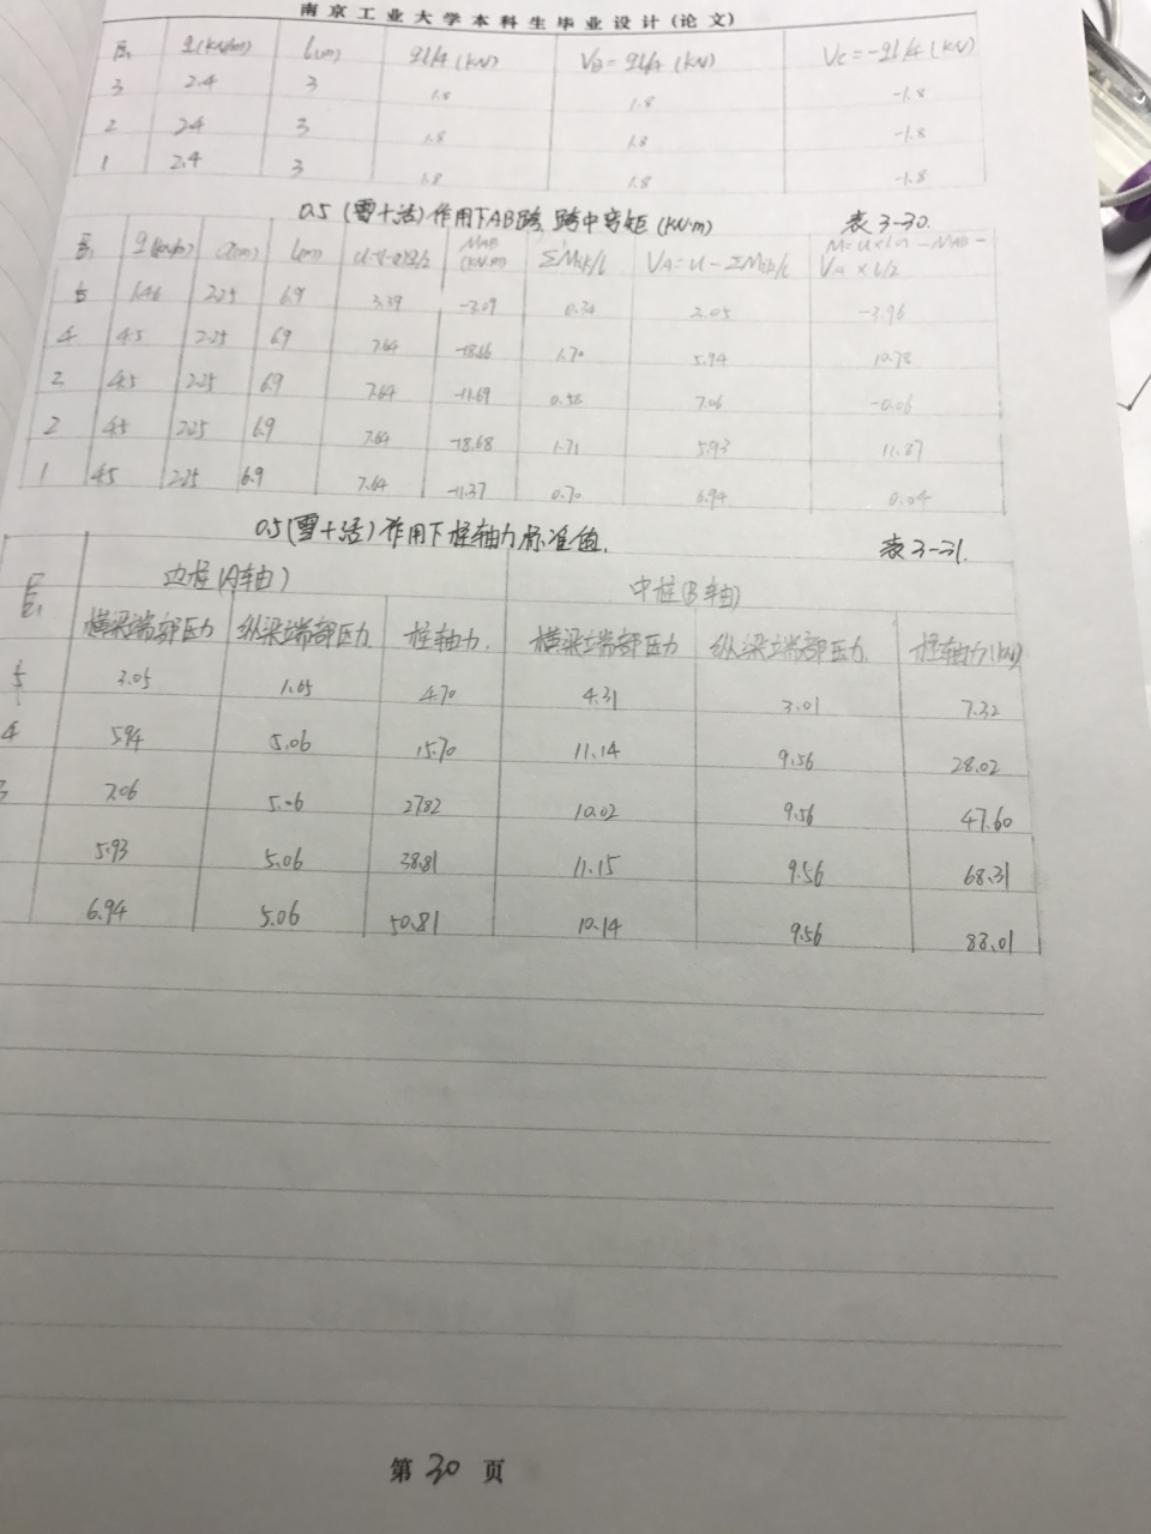 南京工业大学本科生毕业设计(论文)
层 q(kN/m) l(m) ql/4(kN) VB=ql/4(kN) VC=-ql/4(kN)
3 2.4 3 1.8 1.8 -1.8
2 2.4 3 1.8 1.8 -1.8
1 2.4 3 1.8 1.8 -1.8
0.5(雪+活)作用下AB跨跨中弯矩(kN·m) 表3-30.
层 q(kN/m) a(m) l(m) MAB(kN·m) ΣMik/l VA=u-ΣMik/l
5 1.46 2.25 6.9 -3.09 0.34 -3.96
4 4.5 2.25 6.9 7.64 -18.66 1.70 5.94 10.78
2 4.5 2.25 6.9 7.64 -11.69 0.58 7.06 -0.06
2 4.5 2.25 6.9 7.64 -18.68 1.71 5.93 11.87
1 4.5 2.25 6.9 7.64 -11.37 0.70 6.94 0.04
0.5(雪+活)作用下柱轴力标准值. 表3-31.
层 边柱(A轴) 中柱(B轴)
横梁端部压力 纵梁端部压力 柱轴力. 横梁端部压力 纵梁端部压力. 柱轴力(kN)
5 3.05 1.65 4.70 4.31 3.01 7.32
4 5.94 5.06 15.70 11.14 9.56 28.02
3 7.06 5.06 27.82 10.02 9.56 47.60
5.93 5.06 38.81 11.15 9.56 68.31
6.94 5.06 50.81 10.14 9.56 88.01
第 30 页